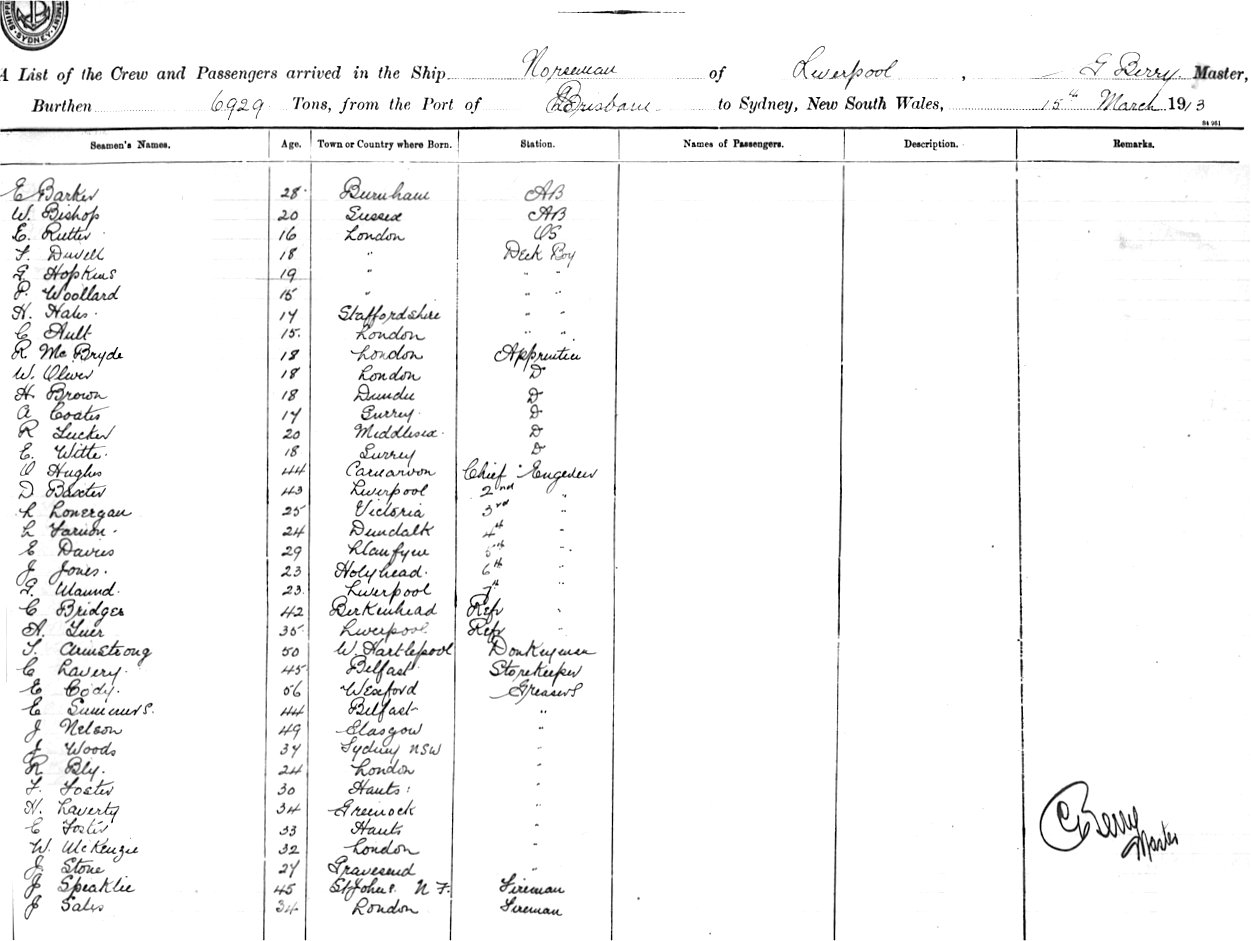 SHIPPING
SYDNEY
A List of the Crew and Passengers arrived in the Ship Norseman of Liverpool, G Berry Master,
Burthen 6929 Tons, from the Port of Brisbane to Sydney, New South Wales, 15th March 1913
Seamen's Names. Age. Town or Country where Born. Station. Names of Passengers. Description. Remarks.
E Barker 28 Burnham AB
W. Bishop 20 Sussex AB
E. Rutter 16 London OS
F. Duvell 18 " Deck Boy
G Hopkins 19 " " "
P. Woollard 15 "
H. Hales 17 Staffordshire " "
C Ault 15 London " "
R McBryde 18 London Apprentice
W. Oliver 18 London D
H. Brown 18 Dundee D
A Coates 17 Surrey D
R Tucker 20 Middlesex D
E. Witte 18 Surrey D
O Hughes 44 Carnarvon Chief Engineer
D Baxter 43 Liverpool 2nd "
L Lonergan 25 Victoria 3rd "
L 24 Dundalk 4th "
E Davies 29 Llanfyne 5th "
J Jones. 23 Holyhead. 6th "
G. Maund. 23 Liverpool 7th "
C Bridges 42 Berkenhead Refr "
A. 35 Liverpool Refr "
T. Armstrong 50 W. Hartlepool Donkeyman
C Lavery. 45 Belfast Storekeeper
E Cody. 56 Wexford Greasers
E Summers. 44 Belfast "
J Nelson 49 Glasgow "
J Woods 37 Sydney NSW "
R Bly. 24 London "
F. Foster 30 Hants "
H. Laverty 34 Greenock "
E Foster 33 Hants "
W. McKenzie 32 London "
J Stone 27 Gravesend "
J Speaklie 45 St Johns. N F. Fireman
J Sales 34 London Fireman
G Berry
Master